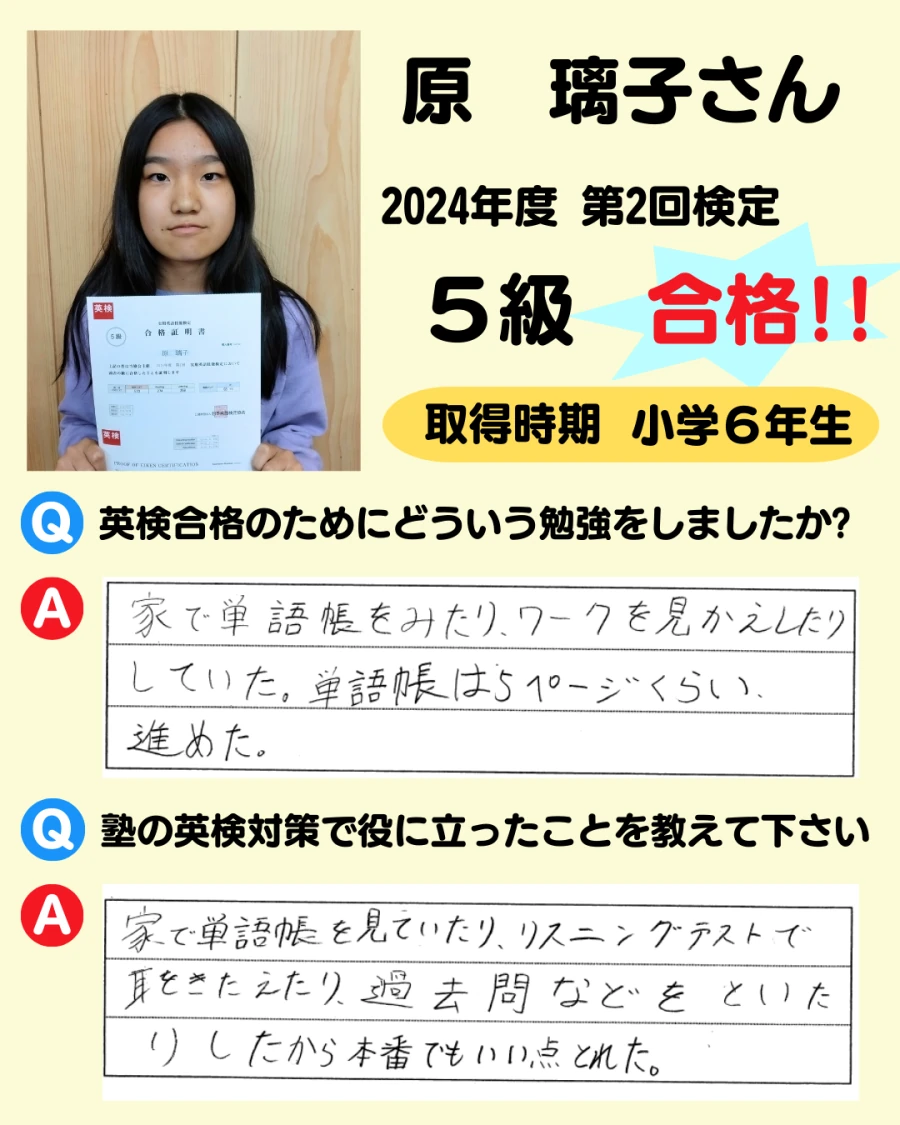 原 璃子さん
2024年度 第2回検定
5級 合格!!
取得時期 小学6年生
英検
5級
合格証明書
原 璃子
英検
Q 英検合格のためにどういう勉強をしましたか?
A 家で単語帳をみたり、ワークを見かえしたり
していた。単語帳は5ページくらい、
進めた。
Q 塾の英検対策で役に立ったことを教えて下さい
A 家で単語帳を見ていたり、リスニングテストで
耳をきたえたり、過去問などをといた
りしたから本番でもいい点とれた。